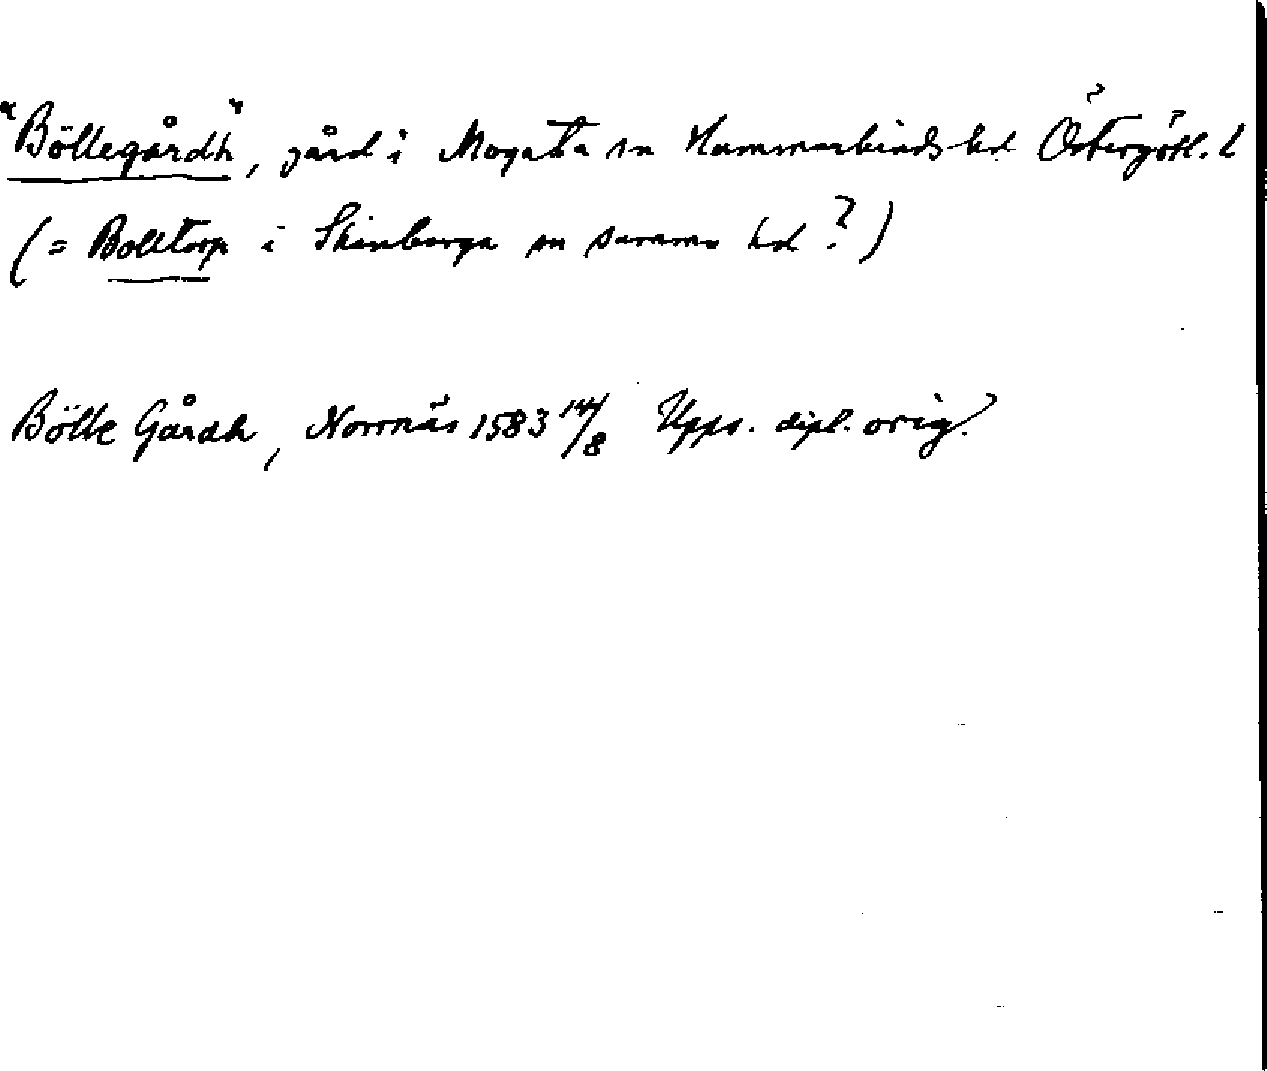 "Böllegårdh", gård i Mogata sn Hammarkinds hd Östergötl. l
(= Bolltorp i Skönberga sn samma hd ?)
Bölle Gårdh, Norrnäs 1583 14/8 Upps. dipl. orig.